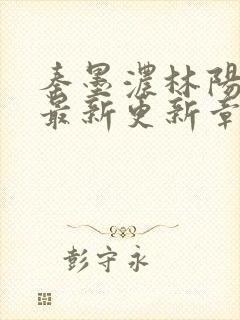 秦墨濃林陽
最新更新章
彭守永